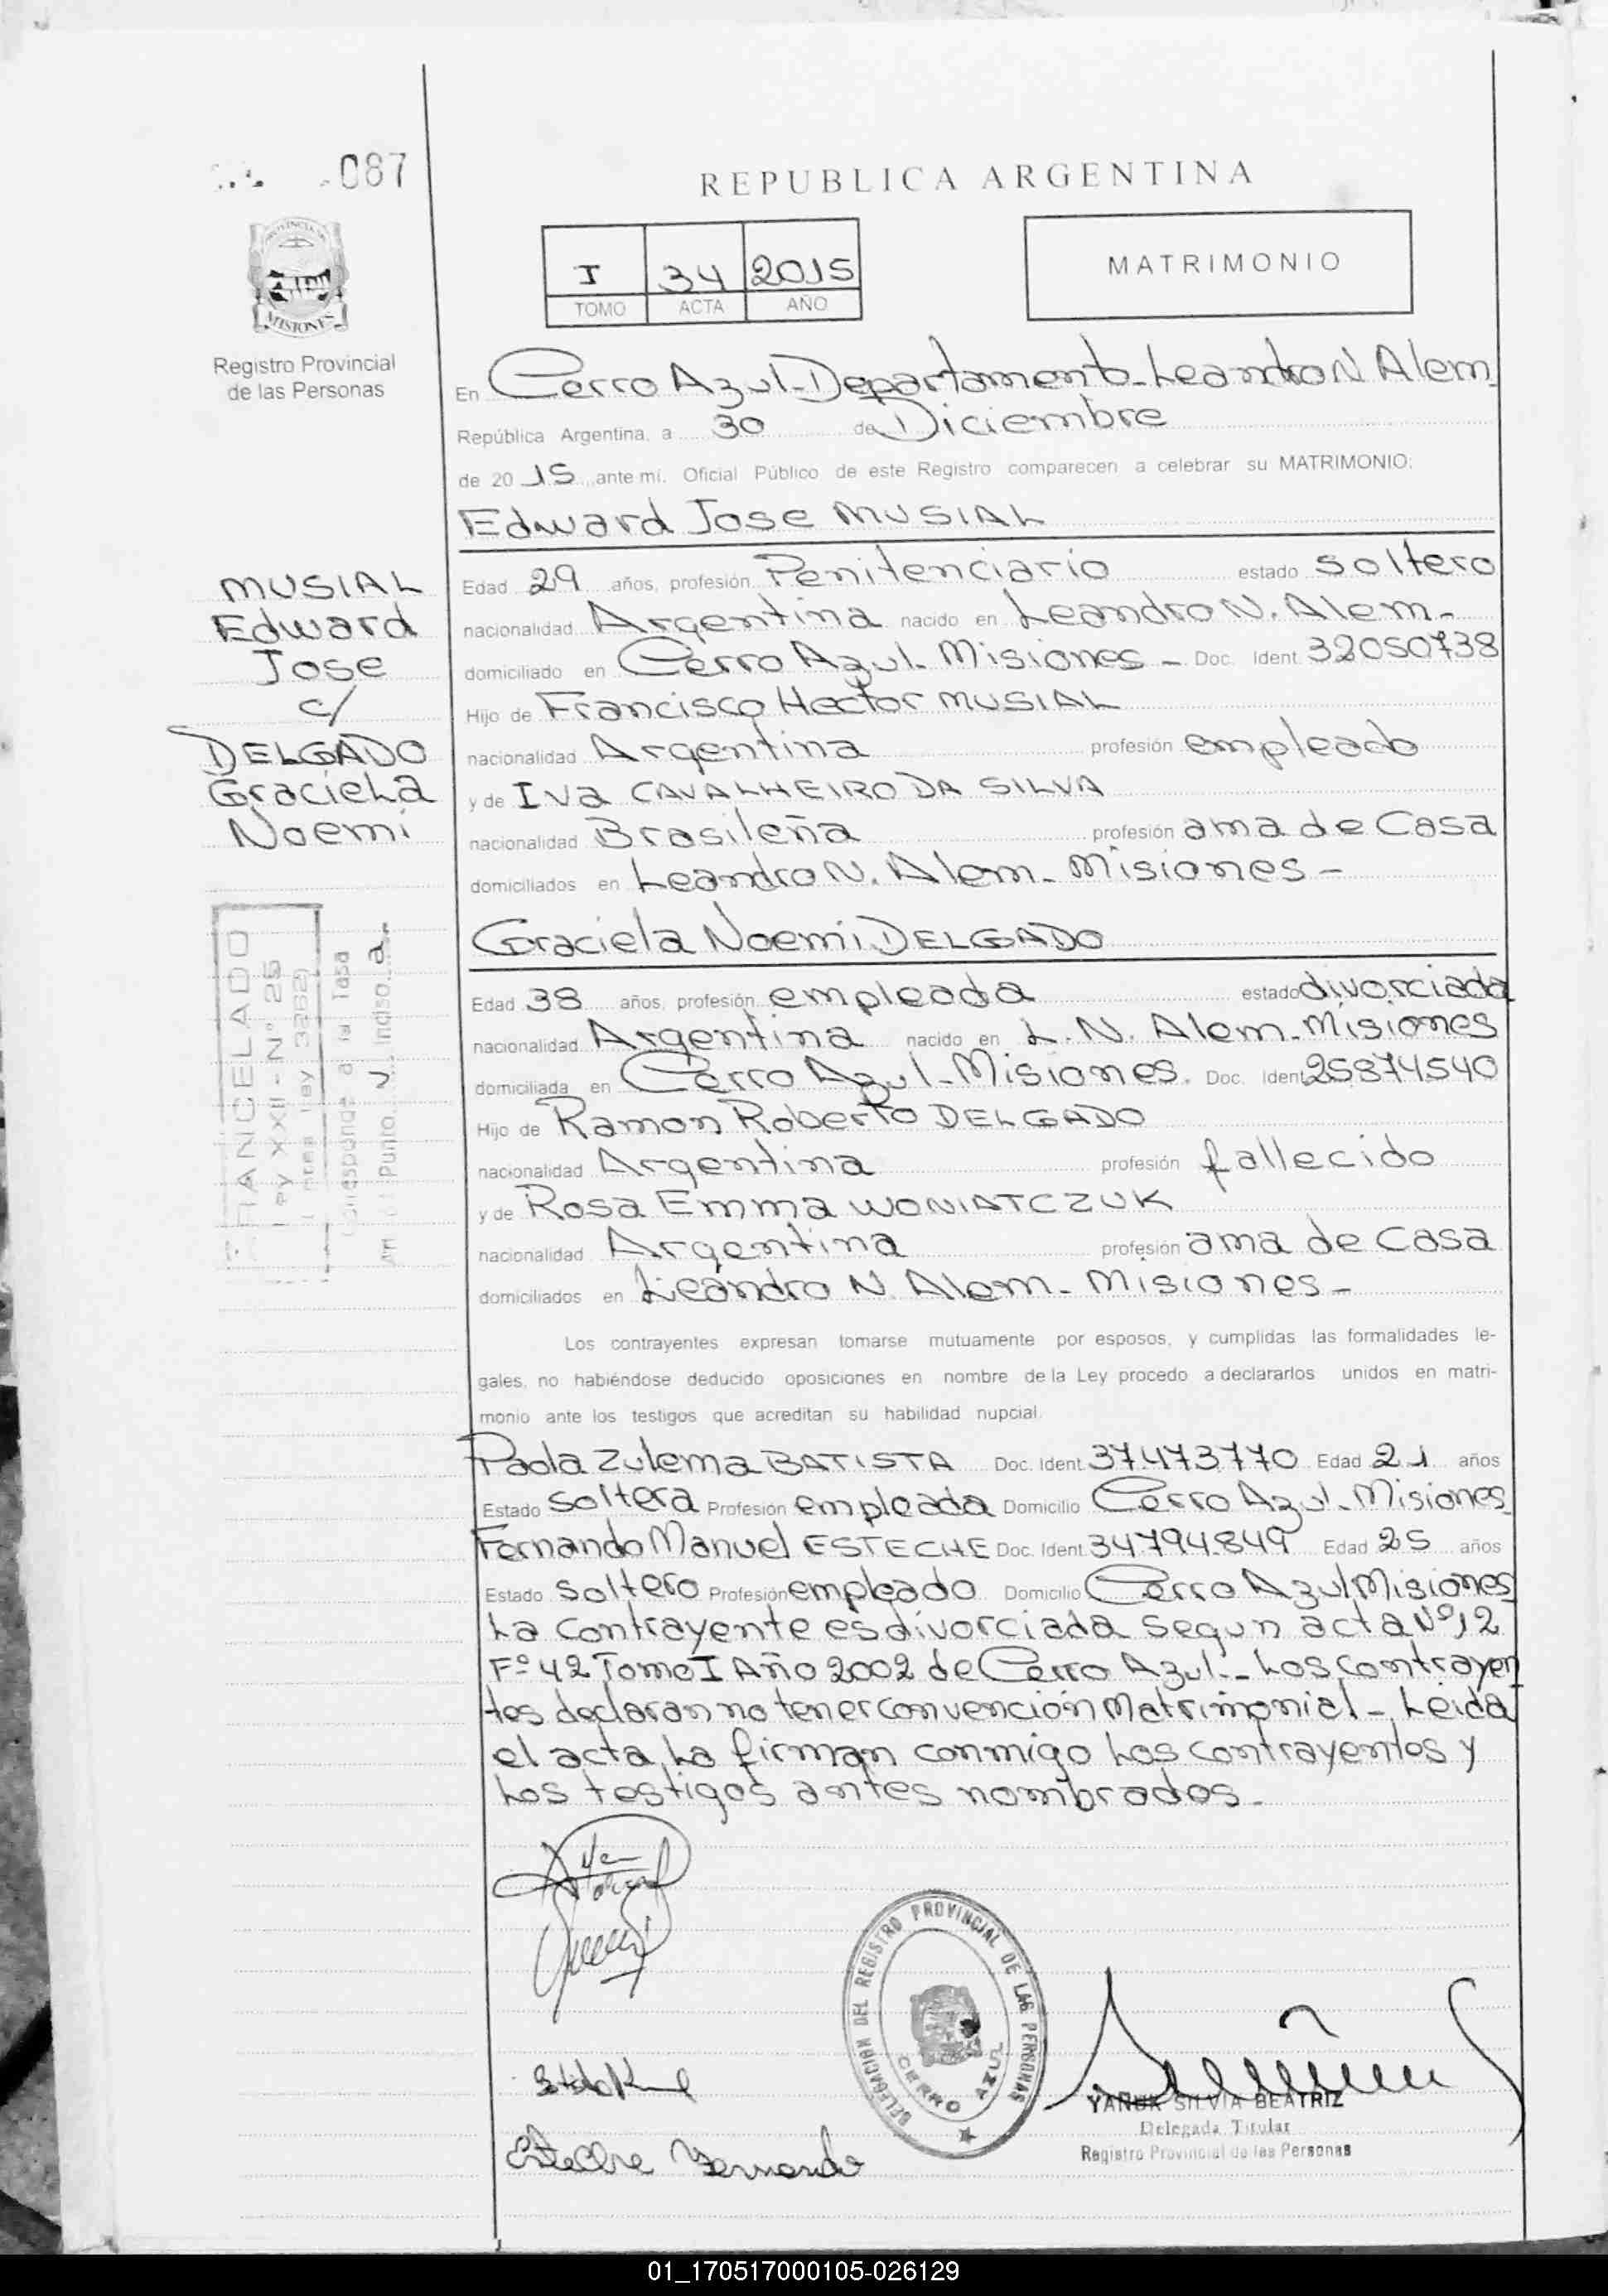 087
REPUBLICA ARGENTINA
I 34 2015
TOMO ACTA AÑO
MATRIMONIO
PROVINCIA DE
MISIONES
Registro Provincial
de las Personas
En Cerro Azul-Departamento-Leandro N Alem
República Argentina, a 30 de Diciembre
de 2015, ante mi. Oficial Público de este Registro comparecen a celebrar su MATRIMONIO:
Edward Jose MUSIAL
MUSIAL
Edward
Jose
c/
DELGADO
Graciela
Noemi
Edad 29 años, profesión Penitenciario estado soltero
nacionalidad Argentina nacido en Leandro N. Alem-
domiciliado en Cerro Azul-Misiones- Doc. Ident. 32050738
Hijo de Francisco Hector MUSIAL
nacionalidad Argentina profesión empleado
y de Iva CAVALHEIRO DA SILVA
nacionalidad Brasileña profesión ama de Casa
domiciliados en Leandro N. Alem-Misiones-
Graciela Noemi DELGADO
ARANCELADO
Ley XXII - N° 25
(antes ley 3262)
Corresponde a la Tasa
Punto V Inciso a
Edad 38 años, profesión empleada estado divorciada
nacionalidad Argentina nacido en L.N. Alem-Misiones
domiciliada en Cerro Azul-Misiones. Doc. Ident. 25874540
Hijo de Ramon Roberto DELGADO
nacionalidad Argentina profesión fallecido
y de Rosa Emma WONIATCZUK
nacionalidad Argentina profesión ama de Casa
domiciliados en Leandro N. Alem-Misiones-
Los contrayentes expresan tomarse mutuamente por esposos, y cumplidas las formalidades le-
gales, no habiéndose deducido oposiciones en nombre de la Ley procedo a declararlos unidos en matri-
monio ante los testigos que acreditan su habilidad nupcial.
Paola Zulema BATISTA Doc. Ident. 37.473.770 Edad 21 años
Estado soltera Profesión empleada Domicilio Cerro Azul-Misiones
Fernando Manuel ESTECHE Doc. Ident. 34.794.849 Edad 25 años
Estado soltero Profesión empleado Domicilio Cerro Azul Misiones
La contrayente es divorciada segun acta Nº12
Fº 42 Tomo I Año 2002 de Cerro Azul.- Los contrayen
tes declaran no tener convención Matrimonial-, Leida
el acta La firman conmigo Los contrayentes y
Los testigos antes nombrados-
DELEGACION DEL REGISTRO PROVINCIAL DE LAS PERSONAS
CERRO AZUL
Esteche Fernando
YAÑUK SILVIA BEATRIZ
Delegada Titular
Registro Provincial de las Personas
01_170517000105-026129